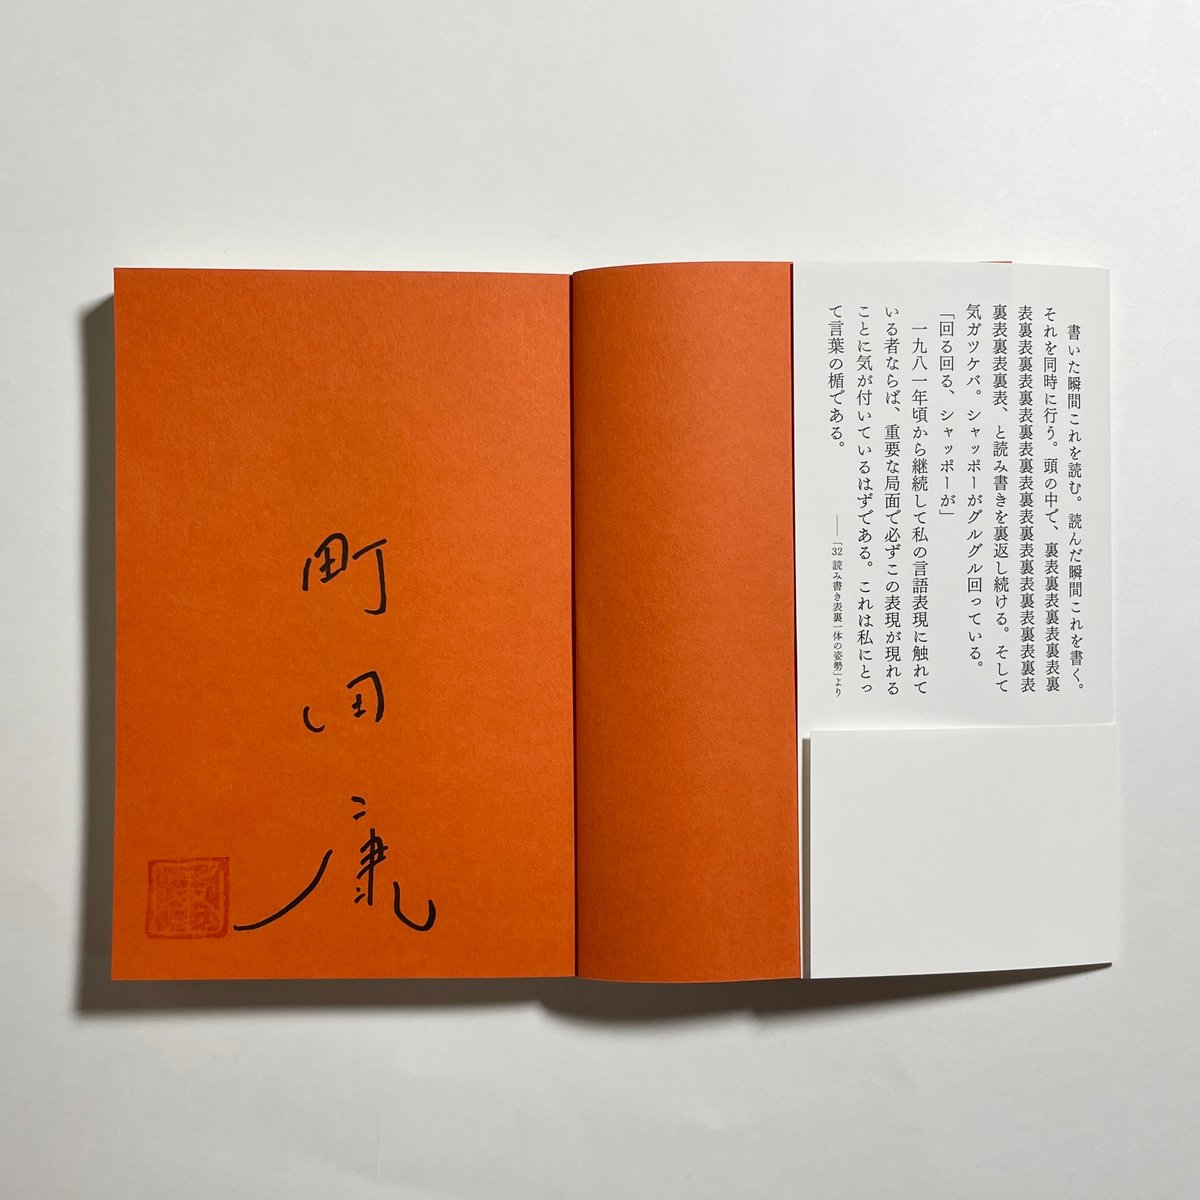 書いた瞬間これを読む。読んだ瞬間これを書く。
それを同時に行う。頭の中で、裏表裏表裏表裏表裏
表裏表裏表裏表裏表裏表裏表裏表裏表裏表裏表裏表
裏表裏表裏表、と読み書きを裏返し続ける。そして
気ガツケバ。シャッポーがグルグル回っている。
「回る回る、シャッポーが」
一九八一年頃から継続して私の言語表現に触れて
いる者ならば、重要な局面で必ずこの表現が現れる
ことに気が付いているはずである。これは私にとっ
て言葉の楯である。
――「32 読み書き表裏一体の姿勢」より
町田康